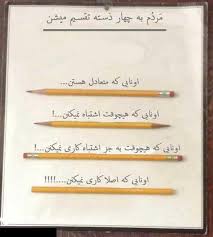 مردم به چهار دسته تقسیم میشن
اونایی که متعادل هستن...
اونایی که هیچوقت اشتباه نمیکنن...!
اونایی که هیچوقت به جز اشتباه کاری نمیکنن..!
اونایی که اصلا کاری نمیکنن...!!!!